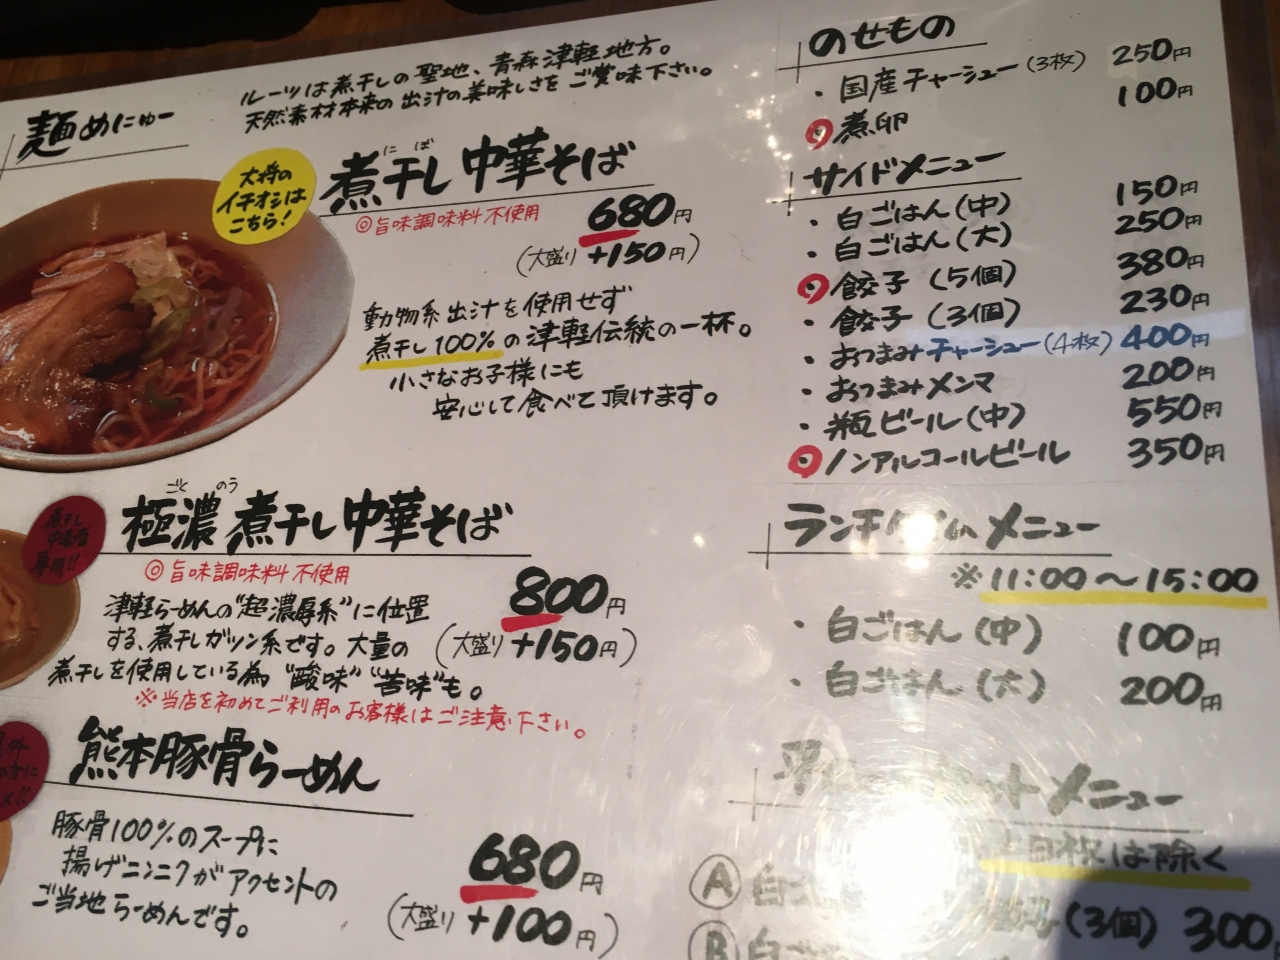 麺めにゅー
ルーツは煮干しの聖地、青森津軽地方。
天然素材本来の出汁の美味しさをご賞味下さい。
大将の
イチオシは
こちら!
にぼ
煮干し中華そば
◎旨味調味料不使用
680円
(大盛り+150円)
動物系出汁を使用せず
煮干し100%の津軽伝統の一杯。
小さなお子様にも
安心して食べて頂けます。
煮干し
中毒者
専用!!
ごくのう
極濃煮干し中華そば
◎旨味調味料不使用
800円
(大盛り+150円)
津軽らーめんの"超濃厚系"に位置
する、煮干しガツン系です。大量の
煮干しを使用している為"酸味""苦味"も。
※当店を初めてご利用のお客様はご注意下さい。
熊本豚骨らーめん
豚骨100%のスープに
揚げニンニクがアクセントの
ご当地らーめんです。
680円
(大盛り+100円)
のせもの
・国産チャーシュー(3枚) 250円
煮卵 100円
サイドメニュー
・白ごはん(中) 150円
・白ごはん(大) 250円
餃子(5個) 380円
・餃子(3個) 230円
・おつまみチャーシュー(4枚) 400円
・おつまみメンマ 200円
・瓶ビール(中) 550円
ノンアルコールビール 350円
ランチタイムメニュー
※11:00〜15:00
・白ごはん(中) 100円
・白ごはん(大) 200円
メニュー
土日祝は除く
Ⓐ白
(3個) 300円
Ⓑ白